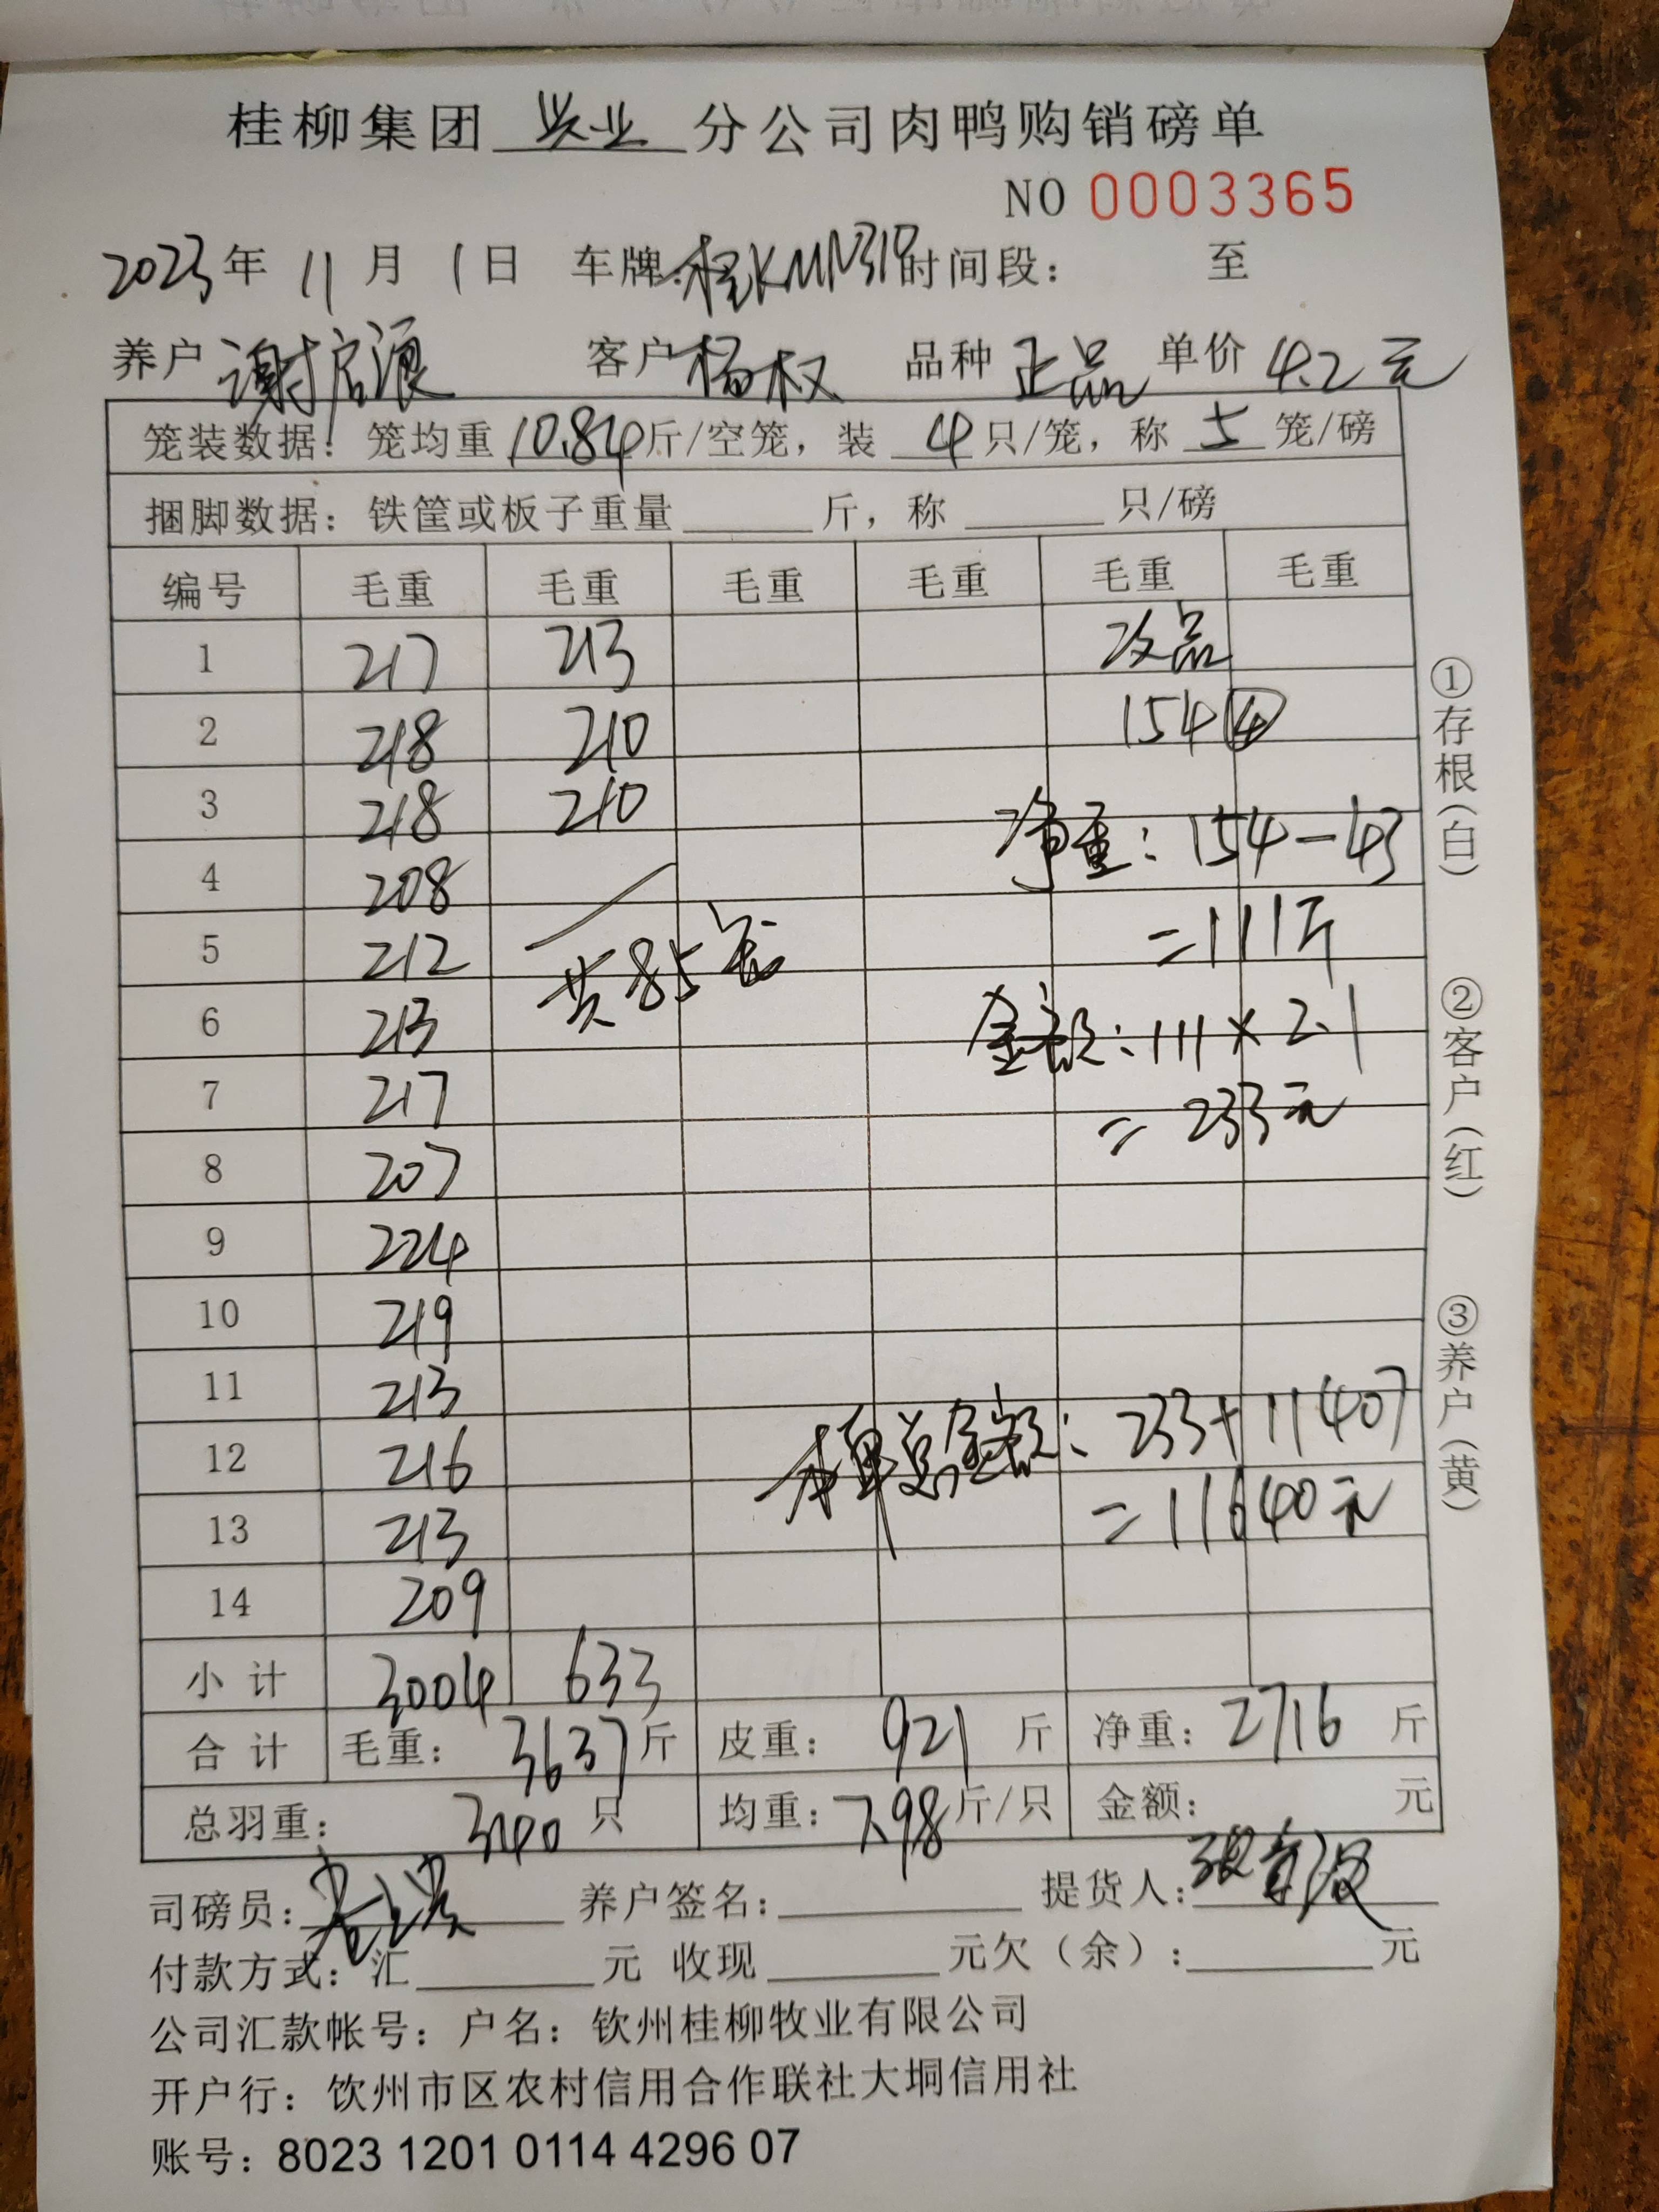 桂柳集团 兴业 分公司肉鸭购销磅单
NO 0003365
2023年 11月 1日 车牌: 桂KMN319 时间段: 至
养户 谢启浪 客户 杨权 品种 正品 单价 4.2元
笼装数据: 笼均重 10.84 斤/空笼, 装 4 只/笼, 称 5 笼/磅
捆脚数据: 铁筐或板子重量 斤, 称 只/磅
编号 毛重 毛重 毛重 毛重 毛重 毛重
1 217 213 次品
2 218 210 154 ④
3 218 210 净重: 154-43
4 208
5 212 共85笼 =111斤
6 213 金额: 111×2.1
7 217 =233元
8 207
9 224
10 219
11 213
12 216 本单总金额: 233+11407
13 213 =11640元
14 209
小计 3004 633
合计 毛重: 3637斤 皮重: 921 斤 净重: 2716 斤
总羽重: 340 只 均重: 7.98斤/只 金额: 元
司磅员: 养户签名: 提货人:
付款方式: 汇 元 收现 元欠(余): 元
公司汇款帐号: 户名: 钦州桂柳牧业有限公司
开户行: 钦州市区农村信用合作联社大垌信用社
账号: 8023 1201 0114 4296 07
①存根(白)
②客户(红)
③养户(黄)